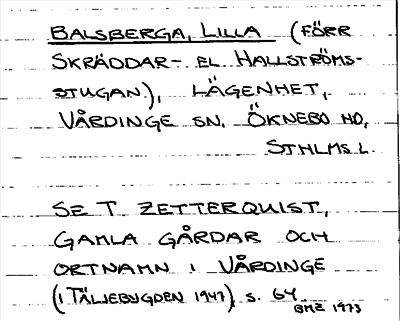 BALSBERGA, LILLA (FÖRR
SKRÄDDAR- EL HALLSTRÖMS-
STUGAN), LÄGENHET,
VÅRDINGE SN. ÖKNEBO HD,
STHLMS L.
SE T. ZETTERQUIST,
GAMLA GÅRDAR OCH
ORTNAMN I VÅRDINGE
(I TÄLJEBYGDEN 1947) S. 64
BMZ 1973